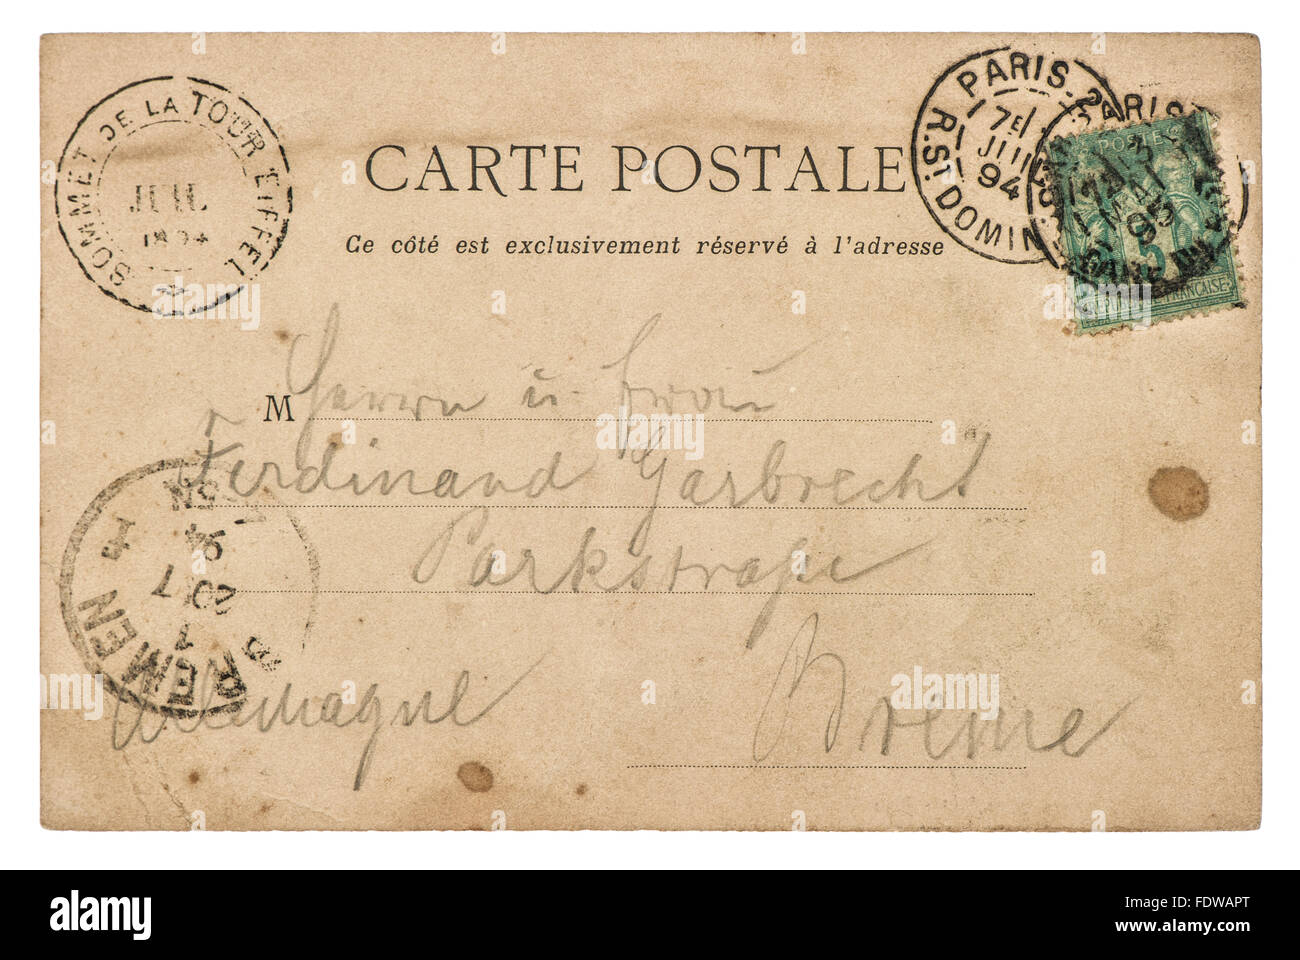 SOMMET DE LA TOUR EIFFEL
JUIL
1894
PARIS
7E
JUIL
94
R. ST DOMIN
PARIS
13
MAI
95
GARE DU
POSTES
5
REPUBLIQUE FRANÇAISE
CARTE POSTALE
Ce côté est exclusivement réservé à l'adresse
M Herrn u. Frau
Ferdinand Garbrecht
Parkstraße
Breme
Allemagne
BREMEN
1
20 7
94
5-6N
alamy
Image ID: FDWAPT
www.alamy.com